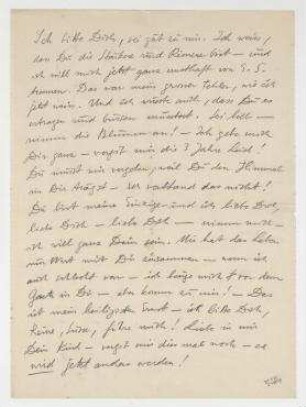 Ich bitte Dich, sei gut zu mir. Ich weiss,
dass Du die Stärkere und Reinere bist – und
ich will mich jetzt ganz ernsthaft von S. S.
trennen. Das war mein grosser Fehler, wie ich
jetzt weiss. Und ich wusste auch, dass Du es
ertragen und büssen musstest. Sei lieb –
nimm die Blumen an! – Ich gebe mich
Dir ganz – vergiss mir die 3 Jahre Leid!
Du musst mir vergeben, weil Du den Himmel
in Dir trägst. – Ich verstand das nicht!
Du bist meine Einzige und ich liebe Dich,
liebe Dich – liebe Dich – nimm mich –
ich will ganz Dein sein. Nur hat das Leben
nur Wert mit Dir zusammen – wenn ich
auch schlecht war – ich beuge mich vor dem
Guten in Dir – also komm zu mir! – Das
ist mein heiligster Ernst – ich bitte Dich,
führe mich! Liebe in mir
Dein Kind – vergiss mir dies mal noch – es
wird jetzt anders werden!